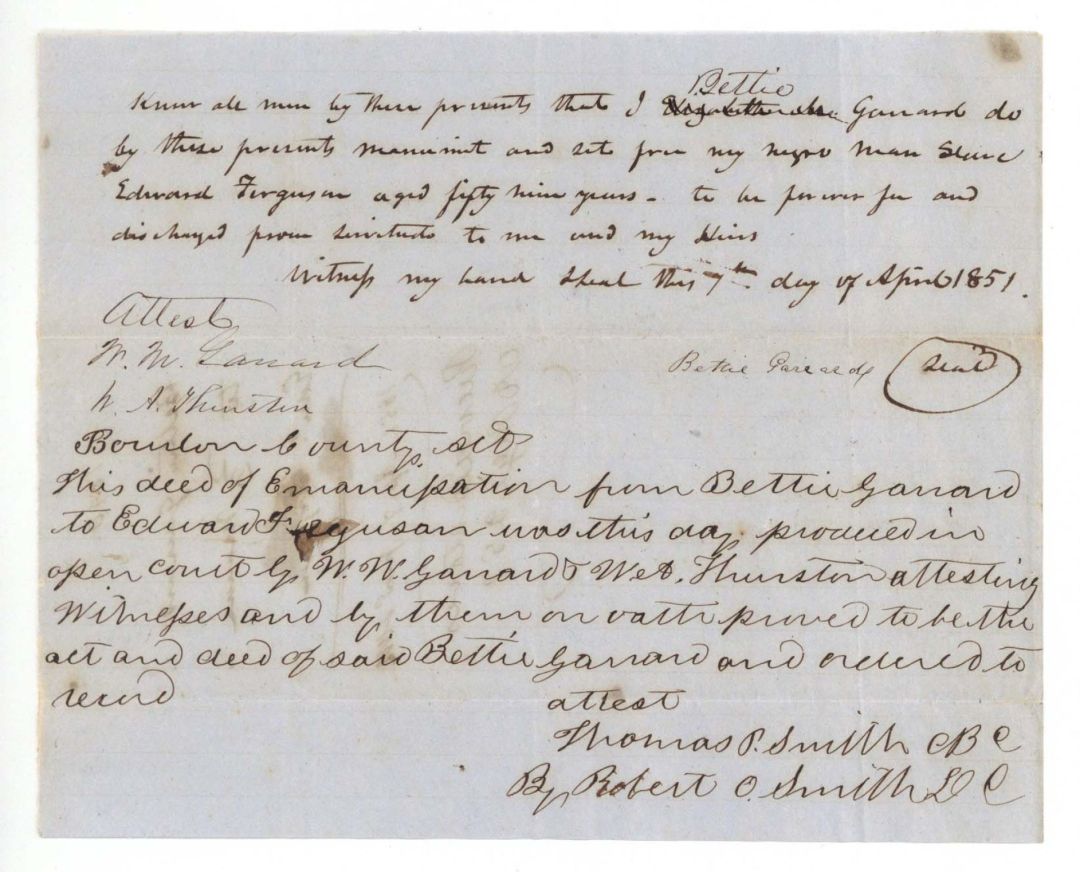 Bettie
Know all men by these presents that I Garrard do
by these presents manumit and set free my negro man Slave
Edward Ferguson aged fifty nine years - to be forever free and
discharged from servitude to me and my Heirs
Witness my hand & seal this 7th day of April 1851.
Attest
W. W. Garrard
W. A. Thurston
Bettie Garrard
Seal
Bourbon County Sct
This deed of Emancipation from Bettie Garrard
to Edward Ferguson was this day produced in
open court by W. W. Garrard & W. A. Thurston attesting
Witnesses and by them on oath proved to be the
act and deed of said Bettie Garrard and ordered to
record
attest
Thomas P. Smith C B C
By Robert O. Smith D C